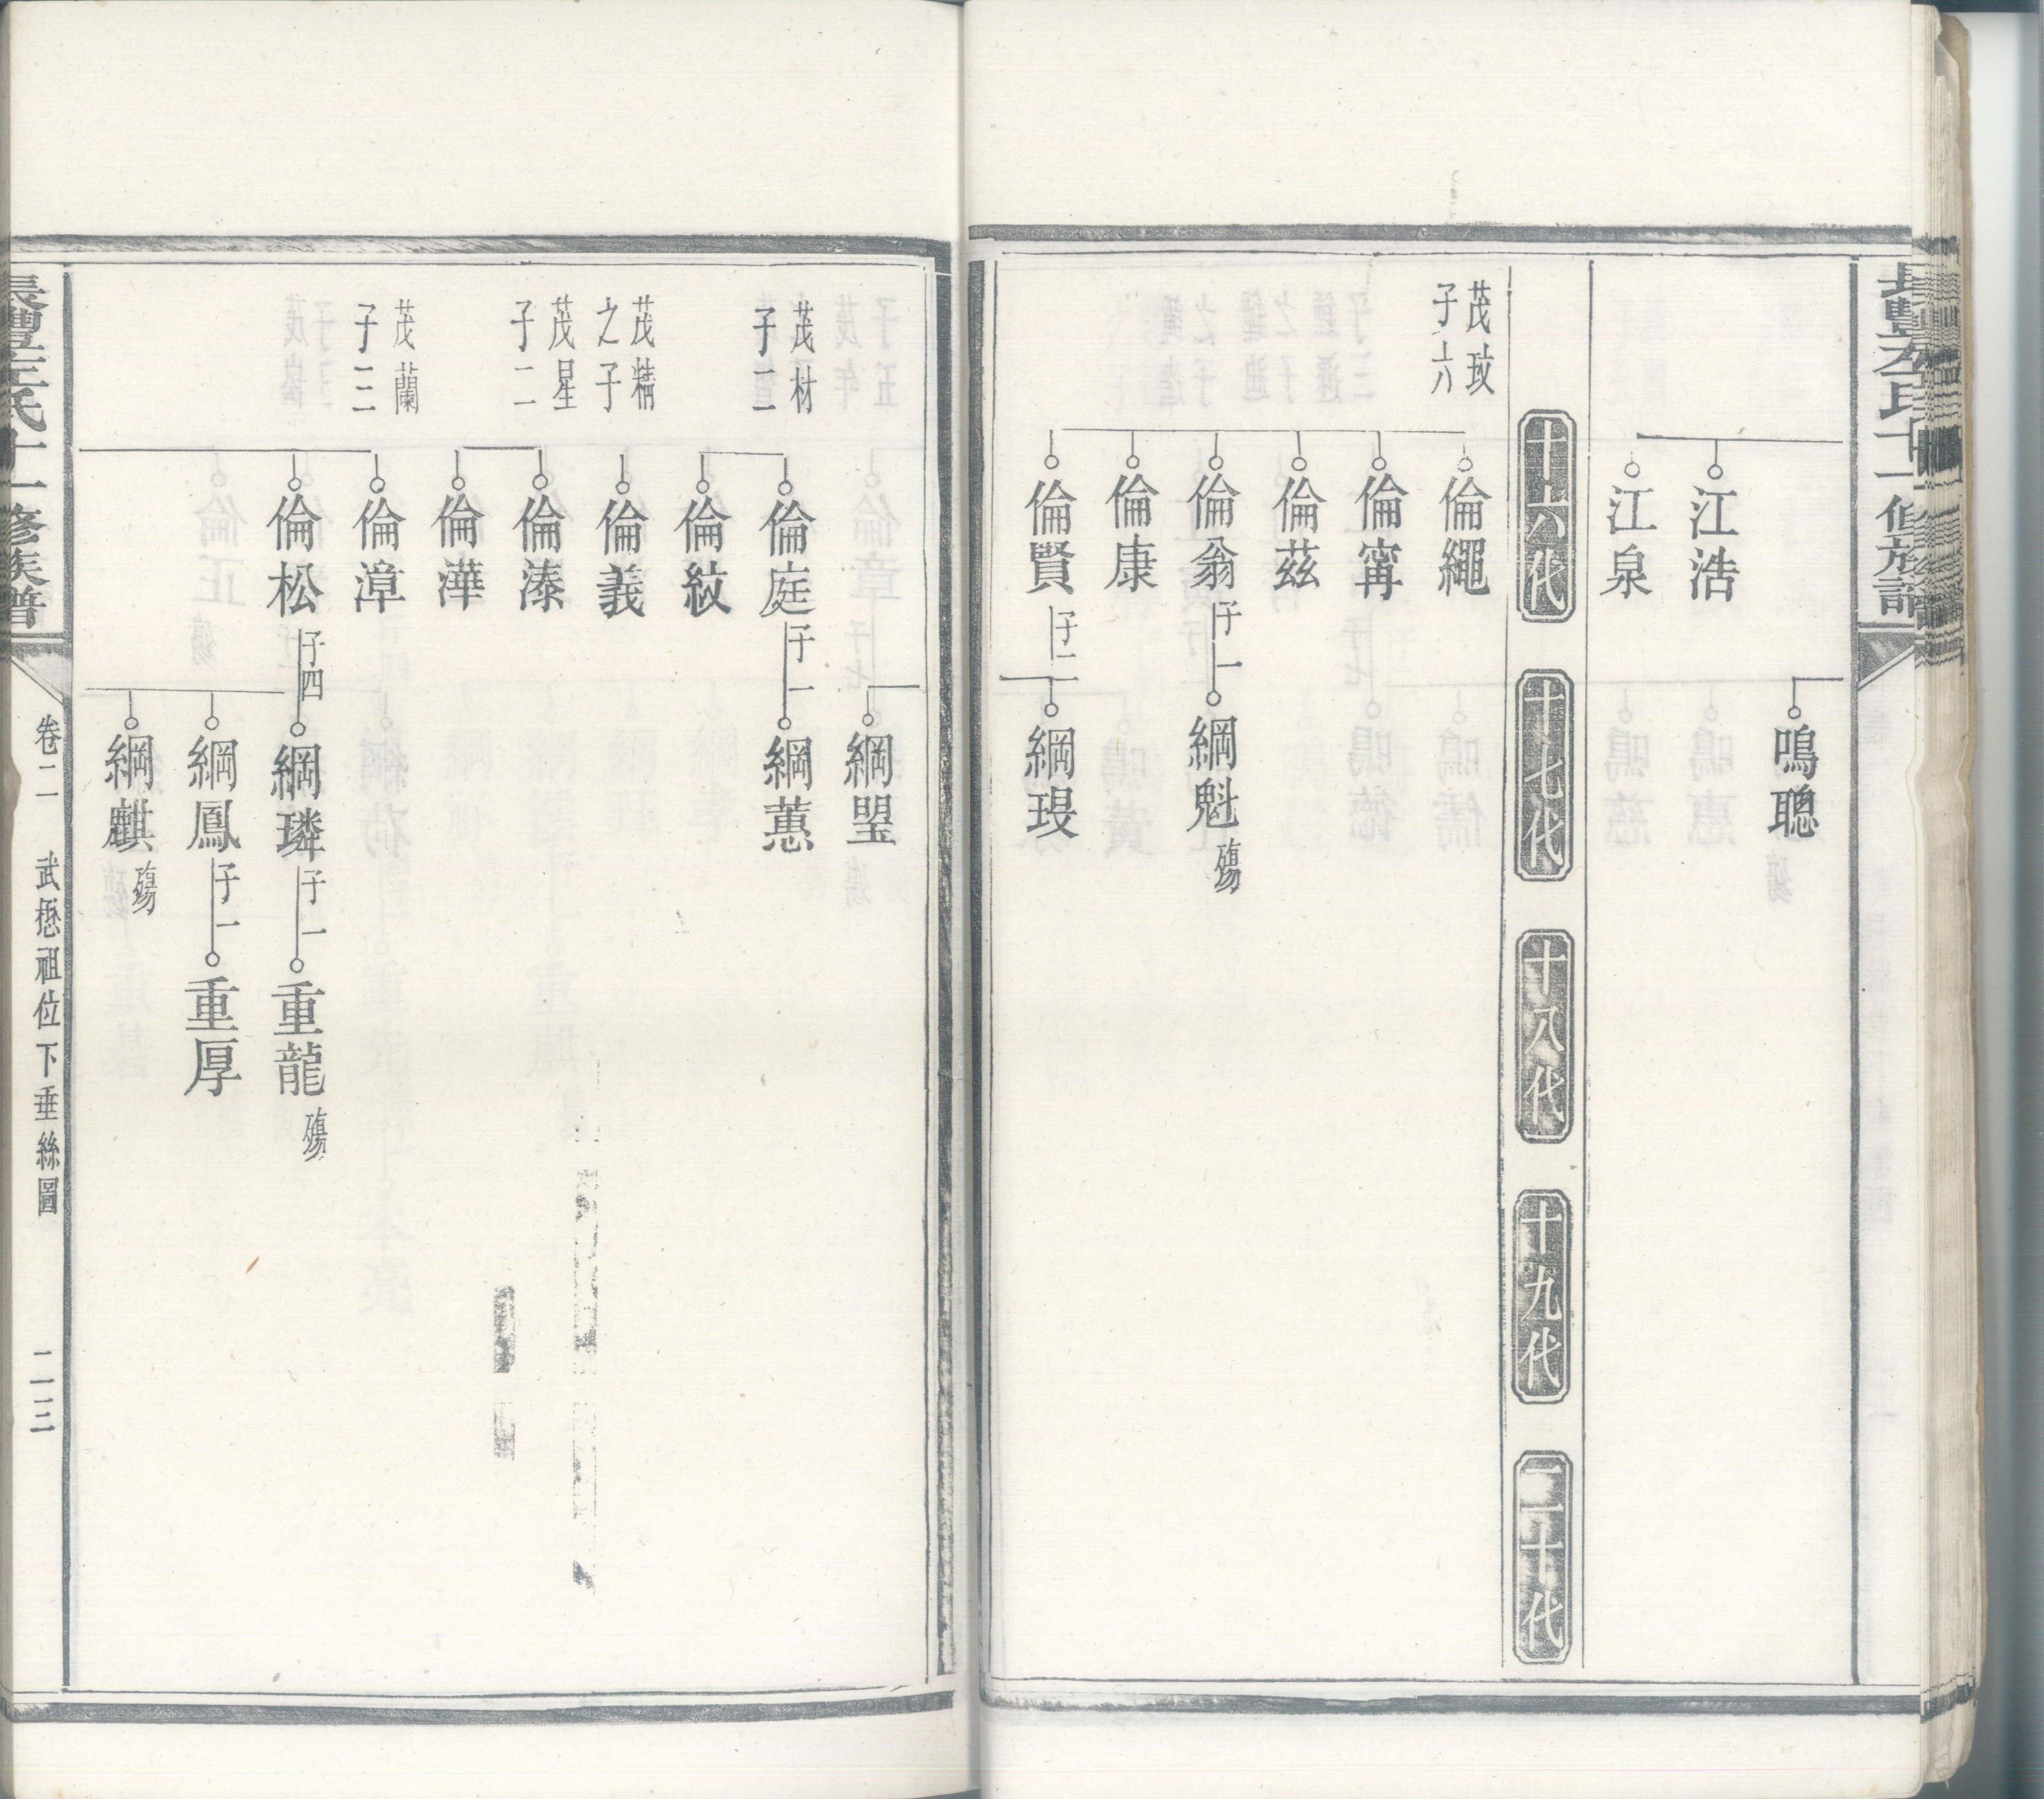 鳴聰
江浩
江泉
十六代
十七代
十八代
十九代
二十代
茂玟
子六
倫繩
倫寗
倫茲
倫翁
子一
綱魁
殤
倫康
倫賢
子二
綱琝
綱琞
茂材
子二
倫庭
子一
綱蕙
倫紋
茂精
之子
倫義
茂星
子二
倫溱
倫澕
茂蘭
子三
倫漳
倫松
子四
綱璘
子一
重龍
殤
綱鳳
子一
重厚
綱麒
殤
氏十一修族譜
卷二
武懋祖位下垂絲圖
二三